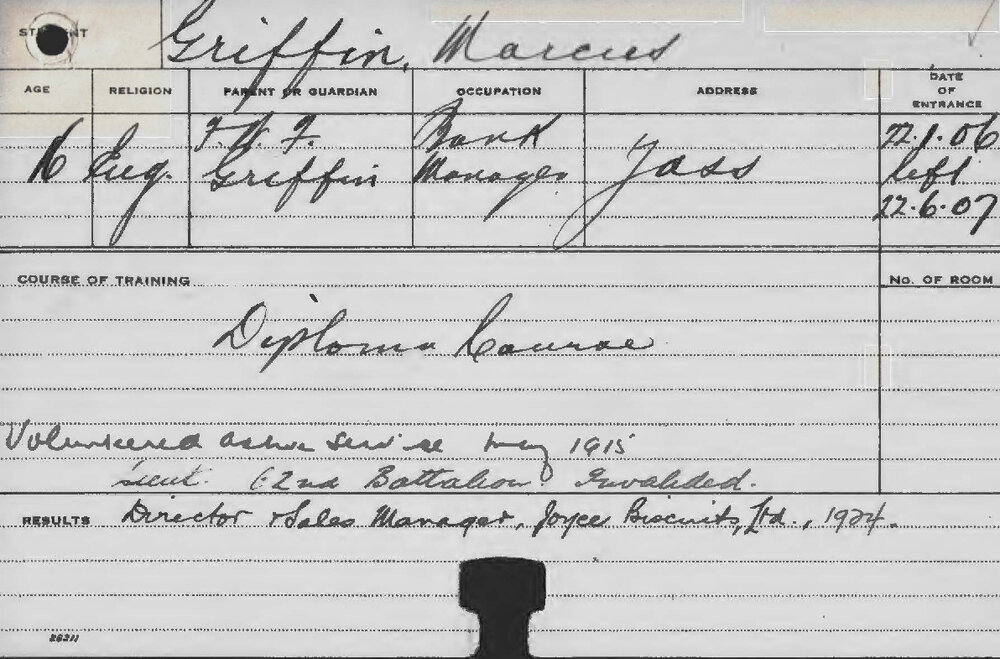 STUDENT
Griffin, Marcus
AGE RELIGION PARENT OR GUARDIAN OCCUPATION ADDRESS DATE OF ENTRANCE
16 Eng. F. W. F. Griffin Bank Manager Yass 22.1.06
left
22.6.07
COURSE OF TRAINING No. OF ROOM
Diploma Course
Volunteered active service May 1915
Lieut. 62nd Battalion Invalided.
RESULTS Director & Sales Manager, Joyce Biscuits, Ltd., 1924.
26311